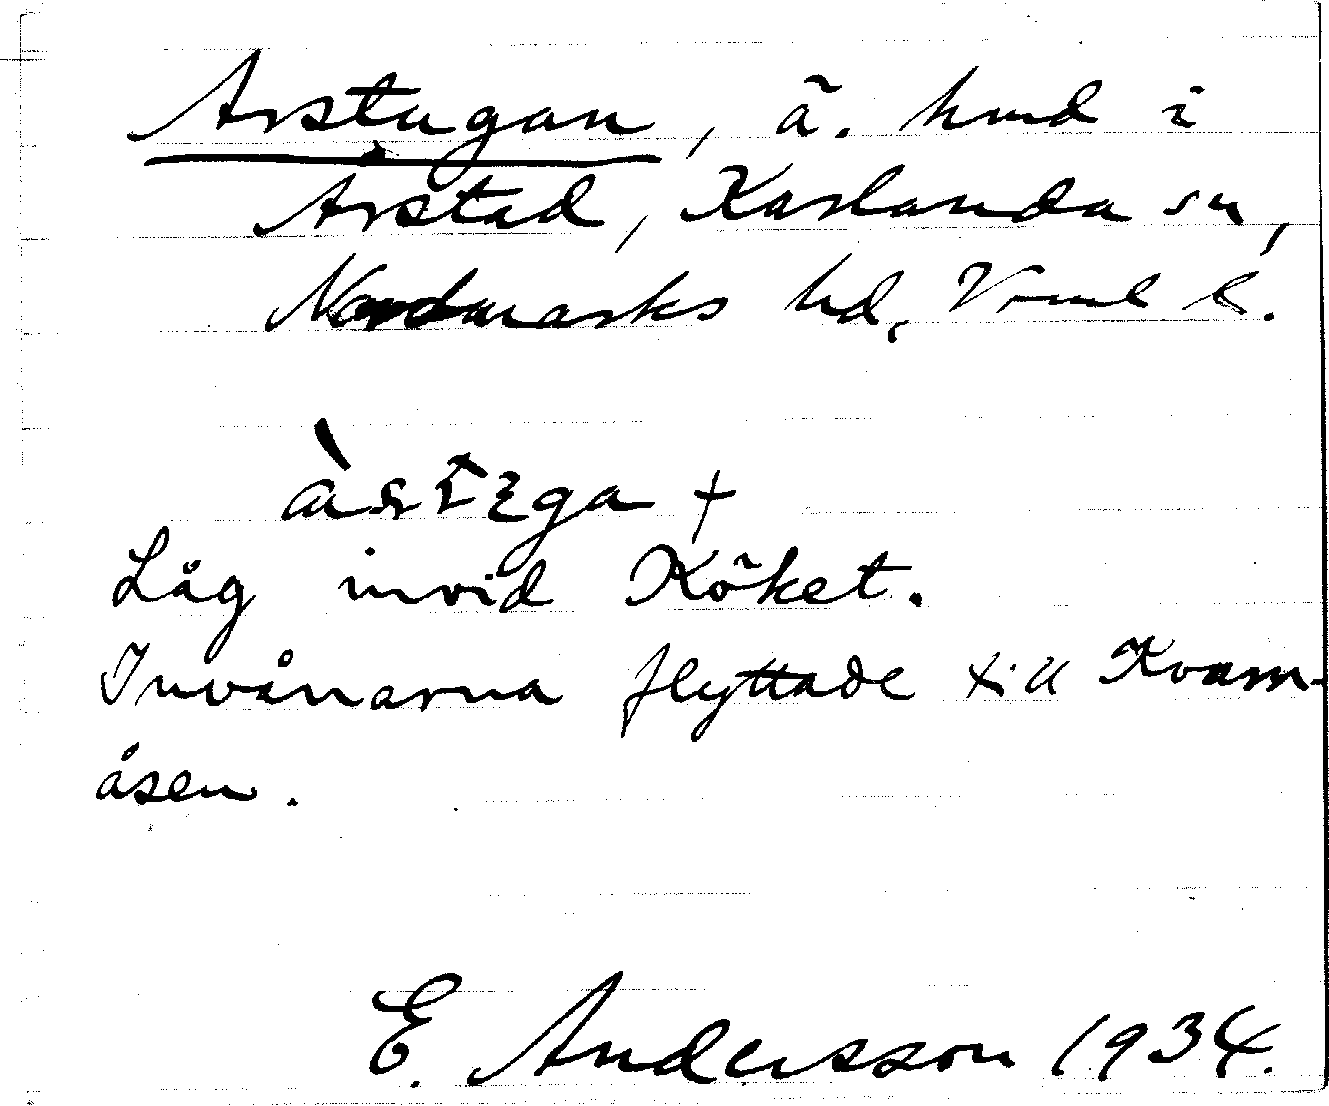 Arstugan, ä. hmd i
Årstad, Karlanda sn,
Nordmarks hd, Vrml l.
Låg invid Köket.
Invånarna flyttade till Kvarn-
åsen.
E. Andersson 1934.